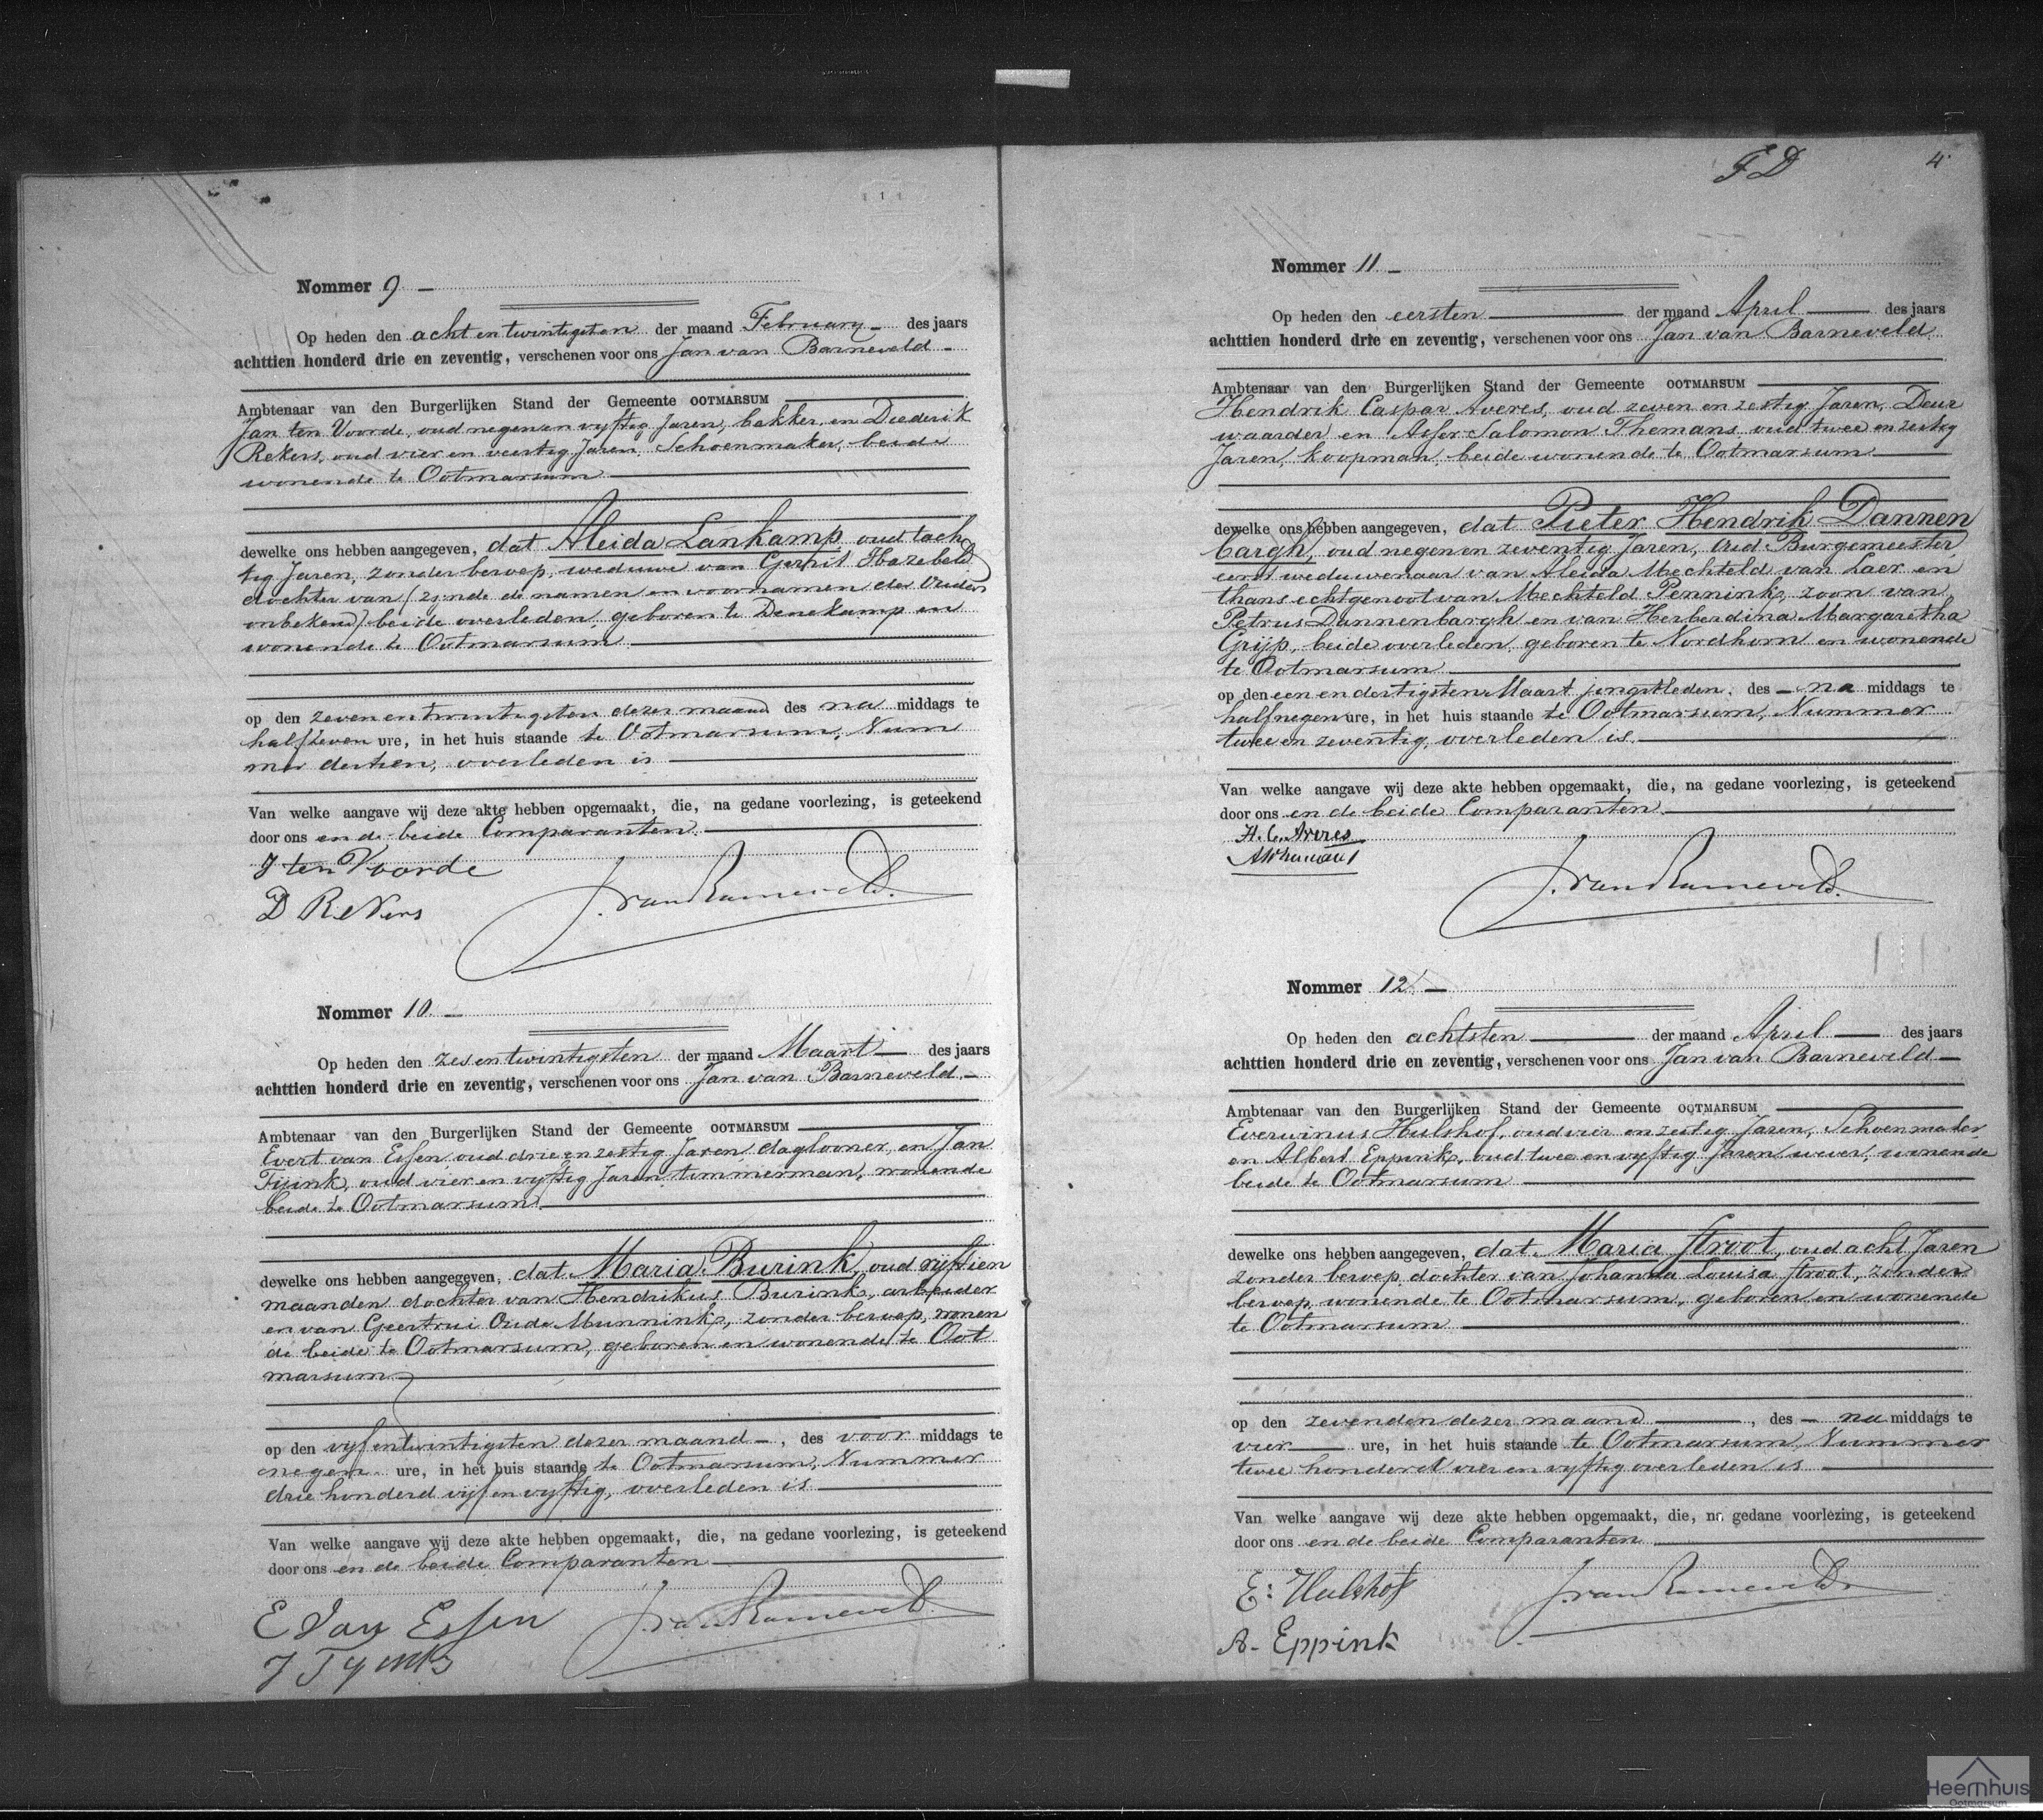 Nommer 9 —
Op heden den acht en twintigsten der maand February — des jaars
achttien honderd drie en zeventig, verschenen voor ons Jan van Barneveld —
Ambtenaar van den Burgerlijken Stand der Gemeente OOTMARSUM
Jan ten Voorde, oud negen en vyftig Jaren, bakker, en Diederik
Rekers, oud vier en veertig Jaren, Schoenmaker, beide
wonende te Ootmarsum
dewelke ons hebben aangegeven, dat Aleida Lankamp oud tach
tig Jaren, zonder beroep, weduwe van Gerrit Hazebeld
dochter van (zijnde de namen en voornamen der Ouders
onbekend) beide overleden, geboren te Denekamp en
wonende te Ootmarsum
op den zeven en twintigsten dezer maand des na middags te
half zeven ure, in het huis staande te Ootmarsum, Num
mer dertien, overleden is
Van welke aangave wij deze akte hebben opgemaakt, die, na gedane voorlezing, is geteekend
door ons en de beide Comparanten.
J ten Voorde
D Rekers
J. van Barneveld.
Nommer 10. —
Op heden den zes en twintigsten der maand Maart — des jaars
achttien honderd drie en zeventig, verschenen voor ons Jan van Barneveld. —
Ambtenaar van den Burgerlijken Stand der Gemeente OOTMARSUM
Evert van Essen, oud drie en zestig Jaren daglooner, en Jan
Tijink, oud vier en vyftig Jaren timmerman, wonende
beide te Ootmarsum.
dewelke ons hebben aangegeven, dat Maria Burink, oud vijftien
maanden dochter van Hendrikus Burink, arbeider
en van Geertrui Oude Munnink, zonder beroep, wonen
de beide te Ootmarsum, geboren en wonende te Oot
marsum
op den vijf en twintigsten dezer maand —, des voor middags te
negen ure, in het huis staande te Ootmarsum, Nummer
drie honderd vijf en vyftig, overleden is
Van welke aangave wij deze akte hebben opgemaakt, die, na gedane voorlezing, is geteekend
door ons en de beide Comparanten
E Van Essen
J Tyink
J. van Barneveld.
F D
4
Nommer 11 —
Op heden den eersten — der maand April — des jaars
achttien honderd drie en zeventig, verschenen voor ons Jan van Barneveld.
Ambtenaar van den Burgerlijken Stand der Gemeente OOTMARSUM
Hendrik Caspar Averes, oud zeven en zestig Jaren, Deur
waarder en Asser Salomon Themans oud twee en zestig
Jaren, koopman, beide wonende te Ootmarsum
dewelke ons hebben aangegeven, dat Pieter Hendrik Dannen
bargh, oud negen en zeventig Jaren, Oud-Burgemeester
eerst weduwenaar van Aleida Mechteld van Laer en
thans echtgenoot van Mechteld Pennink, zoon van
Petrus Dannenbargh en van Herberdina Margaretha
Grijp, beide overleden, geboren te Nordhorn en wonende
te Ootmarsum
op den een en dertigsten Maart jongstleden, des — na middags te
half negen ure, in het huis staande te Ootmarsum, Nummer
twee en zeventig, overleden is.
Van welke aangave wij deze akte hebben opgemaakt, die, na gedane voorlezing, is geteekend
door ons en de beide Comparanten.
H. C. Averes
J. van Barneveld.
Nommer 12. —
Op heden den achtsten — der maand April — des jaars
achttien honderd drie en zeventig, verschenen voor ons Jan van Barneveld —
Ambtenaar van den Burgerlijken Stand der Gemeente OOTMARSUM
Everwinus Hulshof, oud vier en zestig Jaren, Schoenmaker
en Albert Eppink, oud twee en vyftig Jaren wever, wonende
beide te Ootmarsum
dewelke ons hebben aangegeven, dat Maria Stroot, oud acht Jaren
zonder beroep dochter van Johanna Louisa Stroot, zonder
beroep wonende te Ootmarsum, geboren en wonende
te Ootmarsum
op den zevenden dezer maand —, des — na middags te
vier — ure, in het huis staande te Ootmarsum, Nummer
twee honderd vier en vyftig overleden is
Van welke aangave wij deze akte hebben opgemaakt, die, na gedane voorlezing, is geteekend
door ons en de beide Comparanten
E: Hulshof
A. Eppink
J. van Barneveld
Heemhuis
Ootmarsum